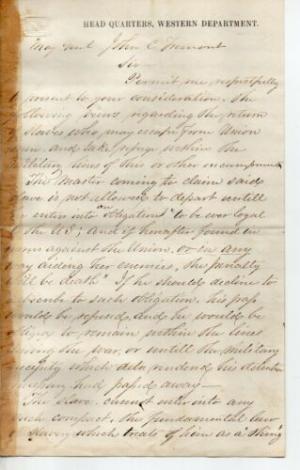 HEAD QUARTERS, WESTERN DEPARTMENT.
John C Fremont
Sir
Permit me, respectfully
to present to your consideration, the
following views, regarding the return
of Slaves who may escape from Union
men and take refuge within the
Military lines of this or other encampments
The Master coming to claim said
slave is not allowed to depart untill
he enters into "obligations" "to be ever loyal
to the US; And if hereafter found in
arms against the Union, or in any
way aiding her enemies, the penalty
will be death" If he should decline to
subscribe to such obligation, his pass
would be refused, and he would be
obliged to remain within the lines
during the war, or untill the military
necessity which
had passed away—
The Slave cannot enter into any
such compact, the fundamental law
of Slavery which treats of him as a "thing"